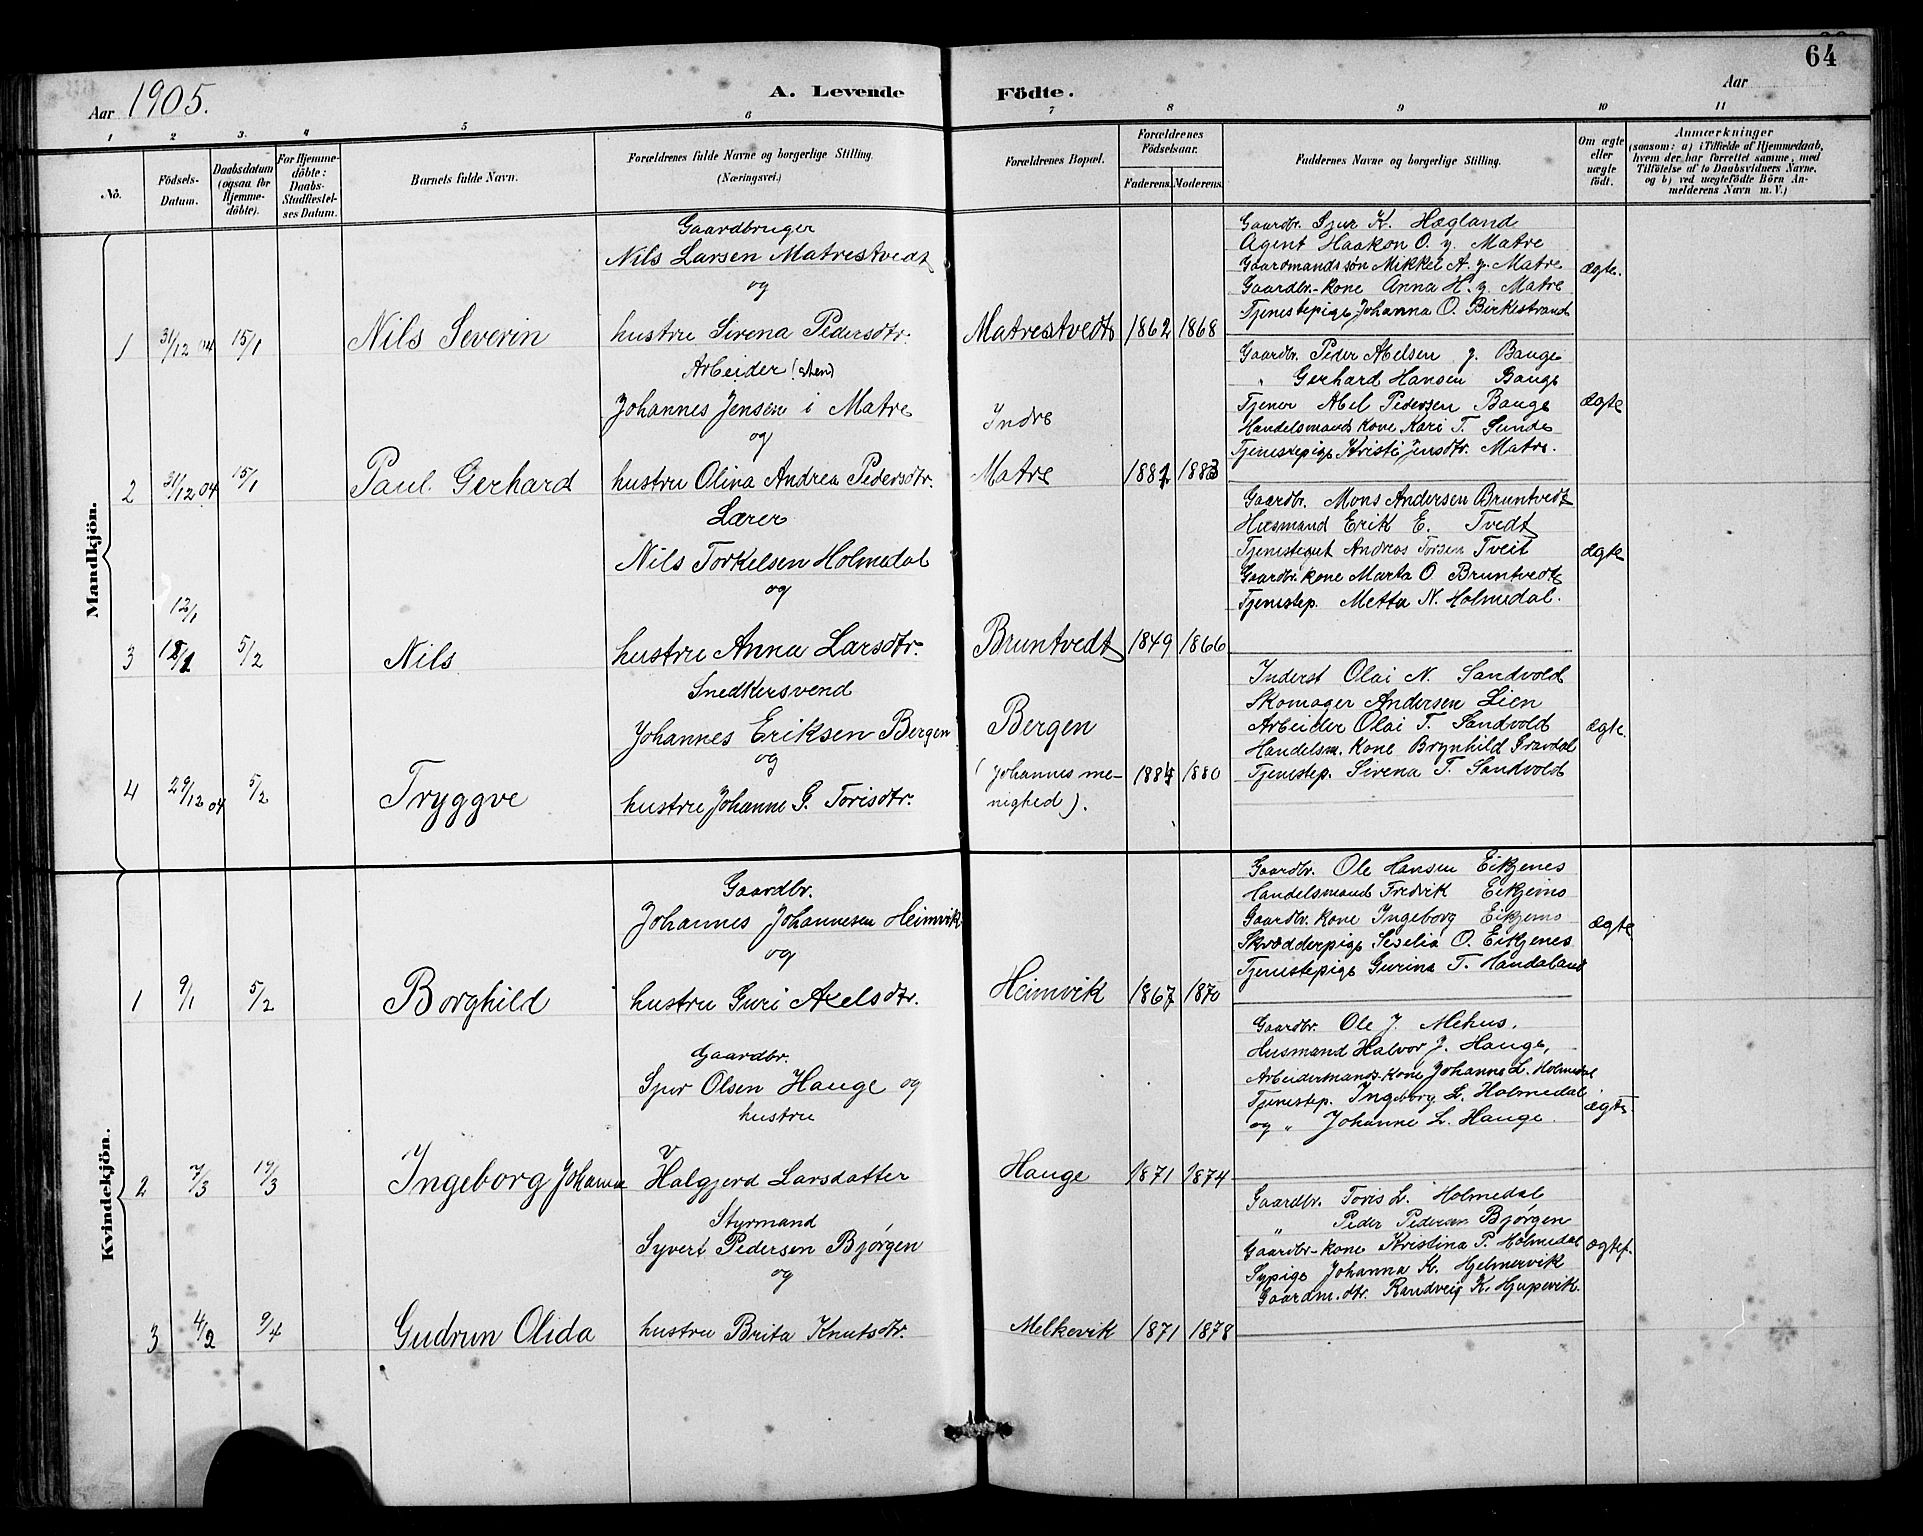 64
Aar 1905.
A. Levende Födte.
Aar
1 2 3. 4 5 6 7 8 9 10 11
Nô.
Födsels-Datum.
Daabsdatum (ogsaa for Hjemme-döbte).
For Hjemme-döbte: Daabs-Stadfæstel-ses Datum.
Barnets fulde Navn.
Forældrenes fulde Navne og borgerlige Stilling. (Næringsvei.)
Forældrenes Bopæl.
Forældrenes Födselsaar.
Faderens. Moderens.
Faddernes Navne og borgerlige Stilling.
Om ægte eller uægte födt.
Anmærkninger
(saasom: a) i Tilfælde af Hjemmedaab,
hvem der har forrettet samme, med
Tilföielse af to Daabsvidners Navne,
og b) ved uægtefödte Börn An-
melderens Navn m. V.)
Mandkjön.
1 31/12 04 15/1 Nils Severin
Gaardbruger
Nils Larsen Matrestvedt
og
hustru Sirena Pedersdtr.
Matrestvedt 1862 1868
Gaardbr. Sjur K. Hægland
Agent Haakon O. y. Matre
Gaardmandssön Mikkel A. y. Matre
Gaardbr.-kone Anna H. y. Matre
Tjenestepige Johanna O. Birkestrand
ægte.
2 31/12 04 15/1 Paul Gerhard
Arbeider (sten)
Johannes Jensen i Matre
og
hustru Olina Andrea Pedersdtr.
Indre
Matre 1881 1883
Gaardbr. Peder Abelsen y. Bauge
" Gerhard Hansen Bauge
Tjener Abel Pedersen Bauge
Handelsmands kone Kari T. Sunde
Tjenestepige Kristi Jensdtr. Matre.
ægte
3 12/1 5/2 Nils
Lærer
Nils Torkelsen Holmedal
og
hustru Anna Larsdtr.
Bruntvedt 1849 1866
Gaardbr. Mons Andersen Bruntvedt
Husmand Erik E. Tvedt
Tjenestegut Andreas Torsen Tveit
Gaardbr. kone Marta O. Bruntvedt
Tjenestep. Metta N. Holmedal.
ægte
4 29/12 04 5/2 Tryggve
Snedkersvend
Johannes Eriksen Bergen
og
hustru Johanne G. Torisdtr.
Bergen
(Johannes me-
nighed). 1884 1880
Inderst Olai N. Sandvold
Skomager Andersen Lien
Arbeider Olai T. Sandvold
Handelsm. kone Brynhild Gravdal
Tjenestep. Sirena T. Sandvold
ægte.
Kvindekjön.
1 9/1 5/2 Borghild
Gaardbr.
Johannes Johannesen Heimvik
og
hustru Guri Axelsdtr.
Heimvik 1867 1870
Gaardbr. Ole Hansen Eikjenes
Handelsmand Fredrik Eikjenes
Gaardbr. kone Ingeborg Eikjenes
Skrædderpige Seselia O. Eikjenes
Tjenestepige Gurina T. Handaland
ægte.
2 7/3 19/3 Ingeborg Johanna
Gaardbr.
Sjur Olsen Hauge og
hustru
Halgjerd Larsdatter
Hauge 1871 1874
Gaardbr. Ole J. Mehus.
Husmand Halvor J. Hauge,
Arbeidermands-kone Johanne L. Holmedal
Tjenestep. Ingeborg L. Holmedal
og " Johanne L. Hauge.
ægte.
3 4/2 9/4 Gudrun Olida
Styrmand
Syvert Pedersen Bjørgen
og
hustru Brita Knutsdtr.
Melkevik 1871 1878
Gaardbr. Toris L. Holmedal
" Peder Pedersen Bjørgen
Gaardbr-kone Kristina P. Holmedal
Sypige Johanna K. Hjelmervik
Gaardm. dtr. Randveig K. Hjupevik.
ægtef.